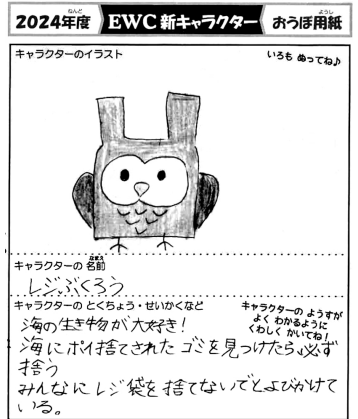 2024年度 EWC新キャラクター おうぼ用紙
なんど
ようし
キャラクターのイラスト
いろも ぬってね♪
キャラクターの名前
なまえ
レジぶくろう
キャラクターの とくちょう・せいかくなど
キャラクターの ようすが
よく わかるように
くわしく かいてね!
海の生き物が大好き!
海にポイ捨てされたゴミを見つけたら必ず
拾う
みんなにレジ袋を捨てないでとよびかけて
いる。